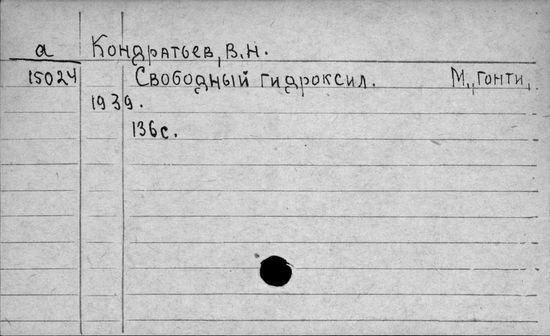 а Кондратьев, В.Н.
15024 Свободный гидроксил. М., ГОНТИ,
1939.
136с.